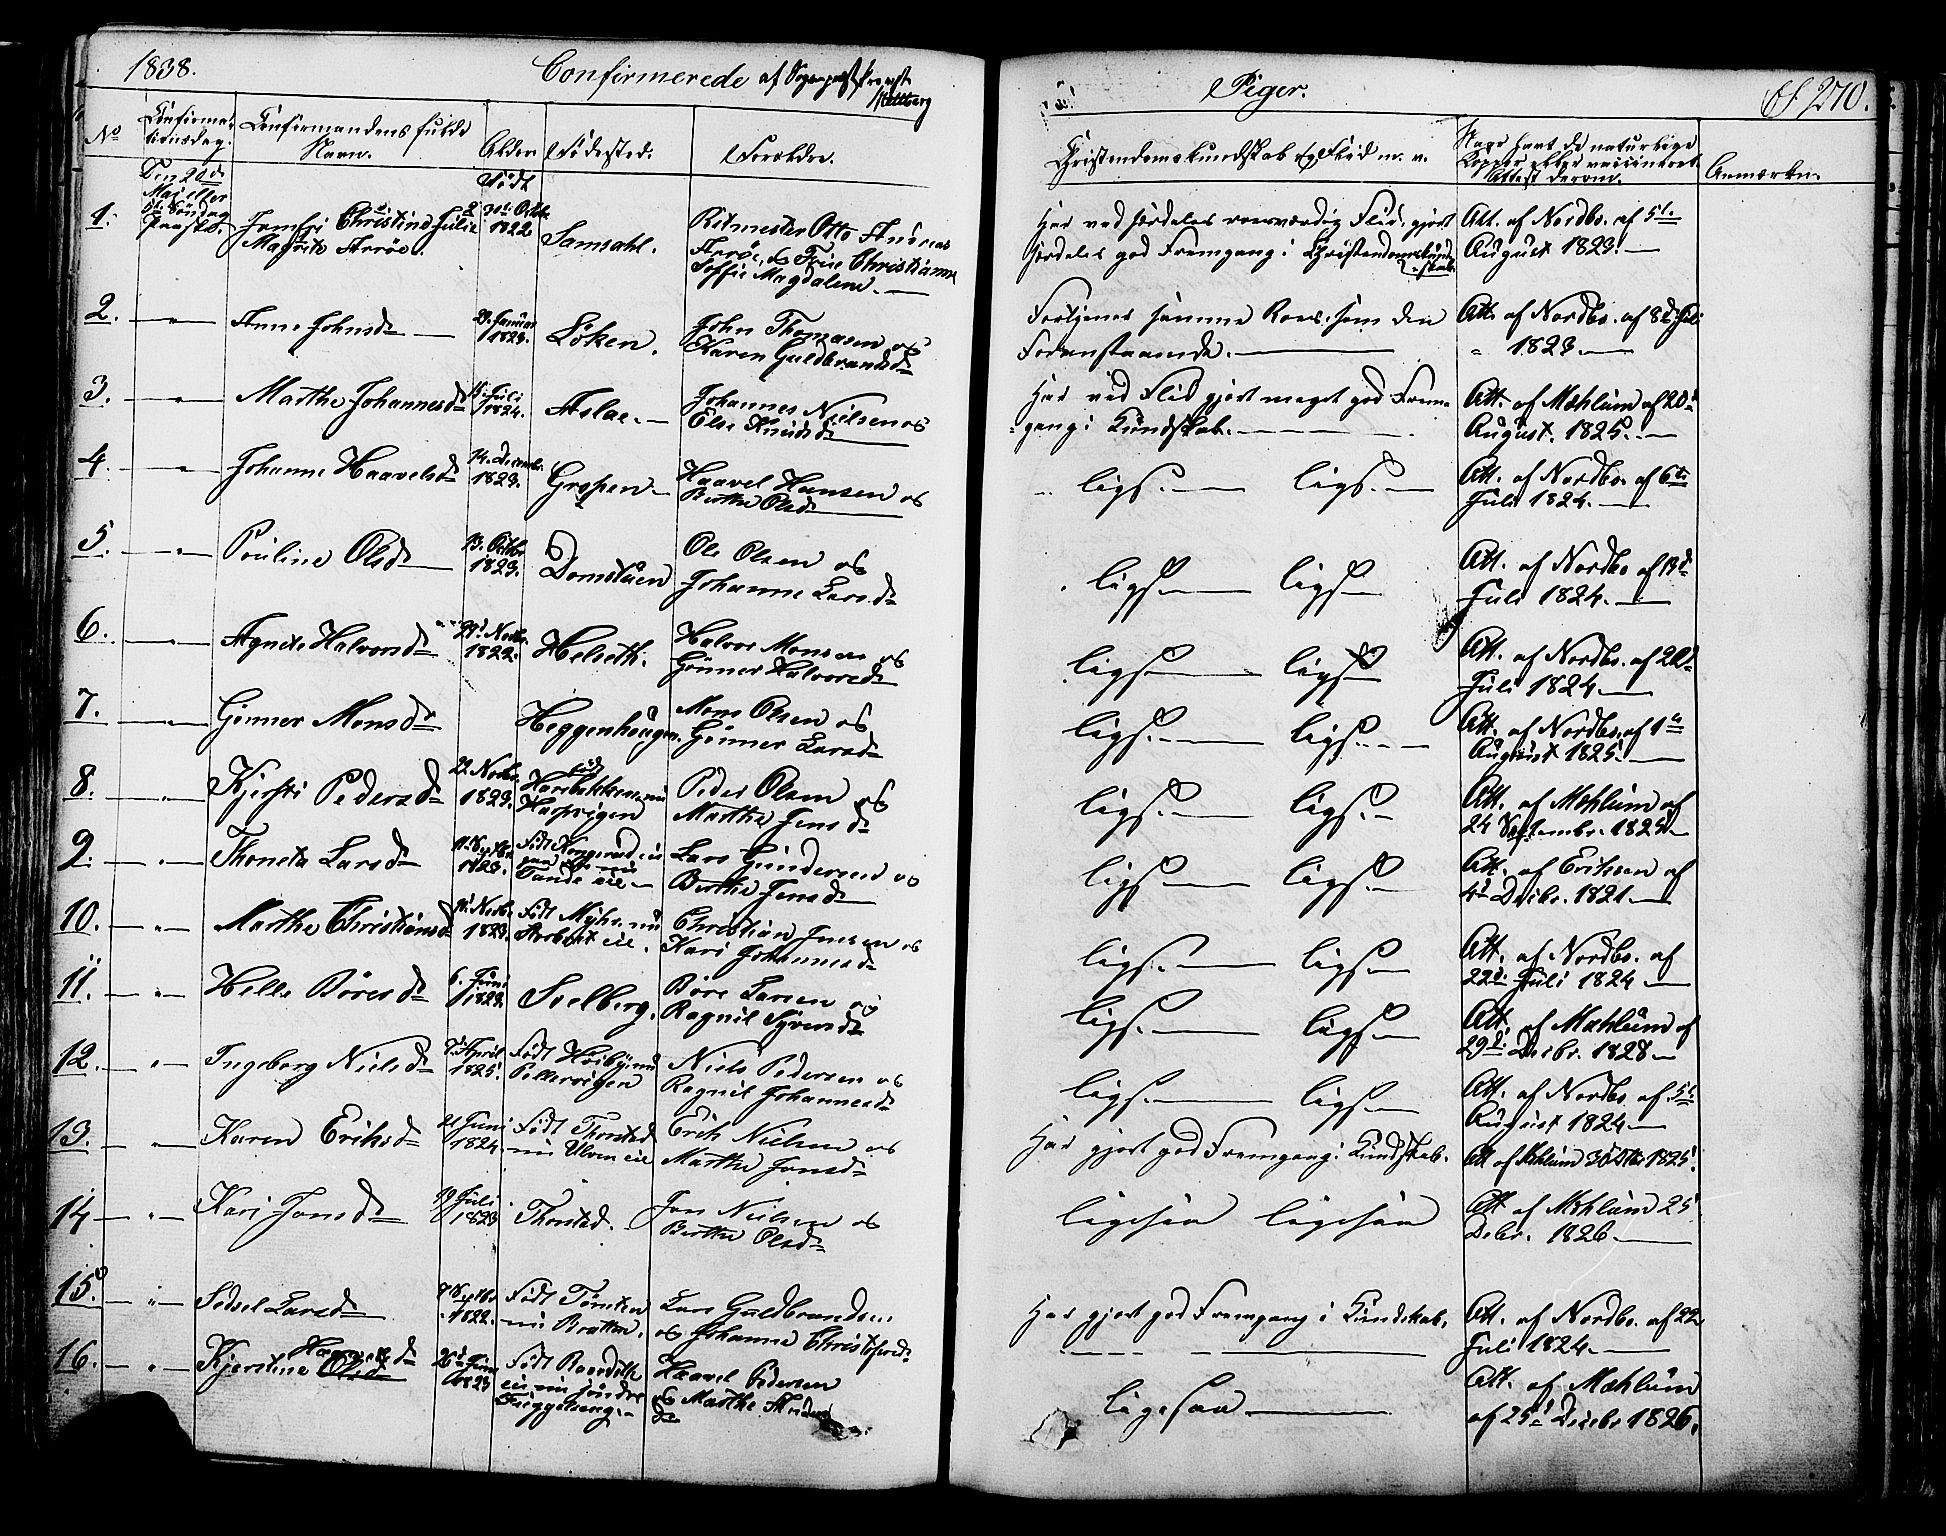 1838. Confirmerede af Sognepræst
Piger. 270.
No
Confirma-
tionsdag.
Confirmandens fulde
Navn.
Alder
Fødested.
Forældre.
Christendomskundskab og Flid m. v.
Naar havt de naturlige
Kopper eller vaccineret
Attest derom.
Anmærkn.
Den 20de
Mai eller
Søndag
Paaske.
Født
1.
Christine Julie
Magrete Arrøe.
31t Octbr.
1822
Samdahl.
Ritmester Otto Andreas
Arrøe, og Frue Christianne
Soffie Magdalene.
Har ved særdeles roesværdig Flid gjort
særdeles god Fremgang i Christendomskund-
skab.
Att. af Nordbo. af 5t.
August 1823.
2. Anne Johnsdr
29. Januar
1823.
Løken.
John Thomasen og
Karen Guldbrandsdr
Fortjener samme Roes som den
Foranstaaende.
Att. af Nordbo. af 8d Juli
1823
3. Marthe Johannesdr
Juli
1824.
Aslae.
Johannes Nielsen og
Else Knudsdr
Har ved Flid gjort meget god Frem-
gang i Kundskab.
Att. af Mæhlum af 20d
August. 1825.
4. Johanne Haavelsdr
14. Decembr.
1823.
Gropen
Haavel Hansen og
Berthe Olsdr
ligs. ligs.
Att. af Nordbo af 6te
Juli 1824.
5. Pouline Olsdr
13. Octbr
1823.
Domstuen
Ole Olsen og
Johanne Larsdr
ligs ligs
Att. af Nordbo af 13d
Juli 1824.
6. Agnete Halvorsdr
29d Novbr.
1822.
Helseth.
Halvor Monsen og
Gunner Halvorsdr
ligs ligs
Att. af Nordbo. af 20d
Juli 1824
7. Gunner Monsdr
Heggenhougen.
Mons Olsen og
Gunner Larsdr
ligs. ligs.
Att. af Nordbo. af 1ste
August 1825.
8. Kjersti Pedersdr
22. Novbr.
1823.
født
nu
Harpvigen
Peder Olsen og
Marthe Jensdr
ligs. ligs.
Att. af Mæhlum af
24 Septembr. 1825.
9. Thoneta Larsdr
11. Septbr.
1823.
Født Kongerud eie
nu
Tande eie
Lars Gundersen og
Berthe Jensdr
ligs. ligs.
Att. af Eriksen af
4d Decbr. 1821.
10. Marthe Christiansdr
Novbr.
1823.
Født Myhr. nu
eie.
Christian Jensen og
Kari Johannesdr
ligs. ligs
Att. af Nordbo. af
22d Juli 1824
11. Helle Børesdr
6. Juni
1823.
Solberg.
Børe Larsen og
Ragnil Syversdr
ligs. ligs
Att. af Mæhlum af
29d. Decbr. 1828
12. Ingeborg Nielsdr
April
1825.
Født Høiby, nu
Pettervigen
Niels Pedersen og
Ragnil Johannesdr
ligs ligs
Att. af Nordbo af 5t
August 1824
13. Karen Eriksdr
21 Juni
1824.
Født Thorstad
nu Ulven eie
Erik Nielsen og
Marthe Jonsdr
Har gjort god Fremgang i Kundskab.
Att af Mæhlum 30 1825.
14 Kari Jonsdr
19 Juli
1823
Thorstad.
Jon Nielsen og
Berthe Olsdr
ligesaa ligesaa
Att af Mæhlum 25
Debr. 1826
15. Sidsel Larsdr
7 Septbr
1822.
Født
nu Bratten.
Lars Guldbrandsen
og Johanne Christofersdr
Har gjort god Fremgang i Kundskab.
Att. af Nordbo. af 22
Juli 1824.
16. Kjerstine Olsdr
26d Juni
1823
Født
eie nu søndre
Haavel Pedersen
og Marthe
dr
ligesaa
Att. af Mæhlum
af 25d Decebr 1826.